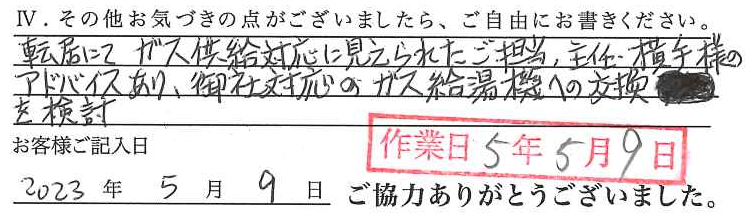 Ⅳ．その他お気づきの点がございましたら、ご自由にお書きください。
転居にて ガス供給対応に見えられたご担当、主任・横手様の
アドバイスあり、御社対応の ガス給湯機への交換
を検討
お客様ご記入日
作業日 5年 5月 9日
2023 年 5 月 9 日 ご協力ありがとうございました。